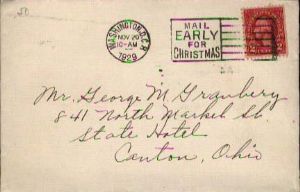 50
WASHINGTON, D.C. R
NOV 20
10-AM
1929
MAIL
EARLY
FOR
CHRISTMAS
2
Mr. George M Granbery
841 North Market St.
State Hotel
Canton, Ohio